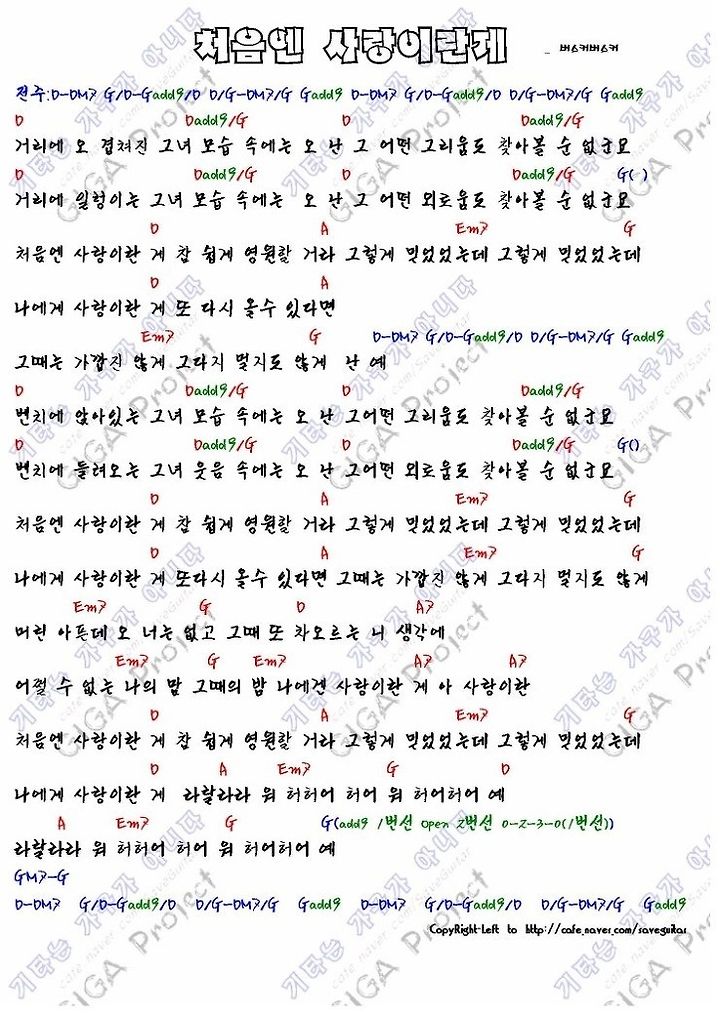 처음엔 사랑이란게 _ 버스커버스커
전주:D-DM7 G/D-Gadd9/D D/G-DM7/G Gadd9 D-DM7 G/D-Gadd9/D D/G-DM7/G Gadd9
D Dadd9/G D Dadd9/G
거리에 오 겹쳐진 그녀 모습 속에는 오 난 그 어떤 그리움도 찾아볼 순 없군요
D Dadd9/G D Dadd9/G G( )
거리에 일렁이는 그녀 모습 속에는 오 난 그 어떤 외로움도 찾아볼 순 없군요
D A Em7 G
처음엔 사랑이란 게 참 쉽게 영원할 거라 그렇게 믿었었는데 그렇게 믿었었는데
D A
나에게 사랑이란 게 또 다시 올수 있다면
Em7 G D-DM7 G/D-Gadd9/D D/G-DM7/G Gadd9
그때는 가깝진 않게 그다지 멀지도 않게 난 예
D Dadd9/G D Dadd9/G
벤치에 앉아있는 그녀 모습 속에는 오 난 그어떤 그리움도 찾아볼 순 없군요
D Dadd9/G D Dadd9/G G()
벤치에 들려오는 그녀 웃음 속에는 오 난 그어떤 외로움도 찾아볼 순 없군요
D A Em7 G
처음엔 사랑이란 게 참 쉽게 영원할 거라 그렇게 믿었었는데 그렇게 믿었었는데
D A Em7 G
나에게 사랑이란 게 또다시 올수 있다면 그때는 가깝진 않게 그다지 멀지도 않게
Em7 G D A7
머린 아픈데 오 너는 없고 그때 또 차오르는 니 생각에
Em7 G Em7 A7 A7
어쩔 수 없는 나의 맘 그때의 밤 나에겐 사랑이란 게 아 사랑이란
D A Em7 G
처음엔 사랑이란 게 참 쉽게 영원할 거라 그렇게 믿었었는데 그렇게 믿었었는데
D A Em7 G D
나에게 사랑이란 게 라랄라라 워 허허어 허어 워 허어허어 예
A Em7 G G(add9 /1번선 open 2번선 0-2-3-0(/1번선))
라랄라라 워 허허어 허어 워 허어허어 예
GM7-G
D-DM7 G/D-Gadd9/D D/G-DM7/G Gadd9 D-DM7 G/D-Gadd9/D D/G-DM7/G Gadd9
CopyRight-Left to http://cafe.naver.com/saveguitar
기타는 가구가 아니다
cafe.naver.com/SaveGuitar
GIGA Project